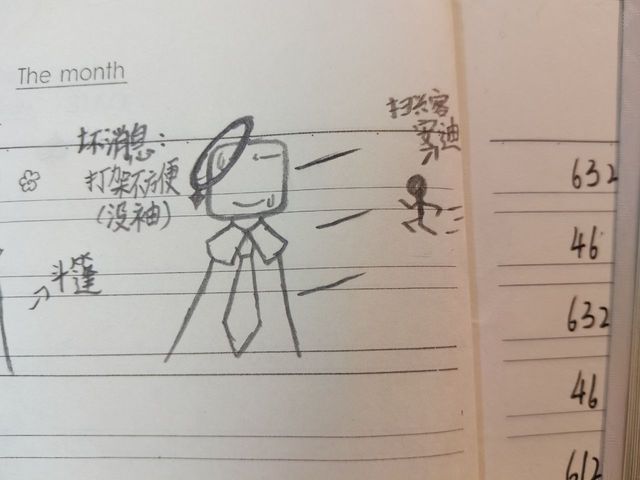 The month
坏消息：
打架不方便
（没袖）
斗篷
扫兴客
安迪
632
46
632
46
612